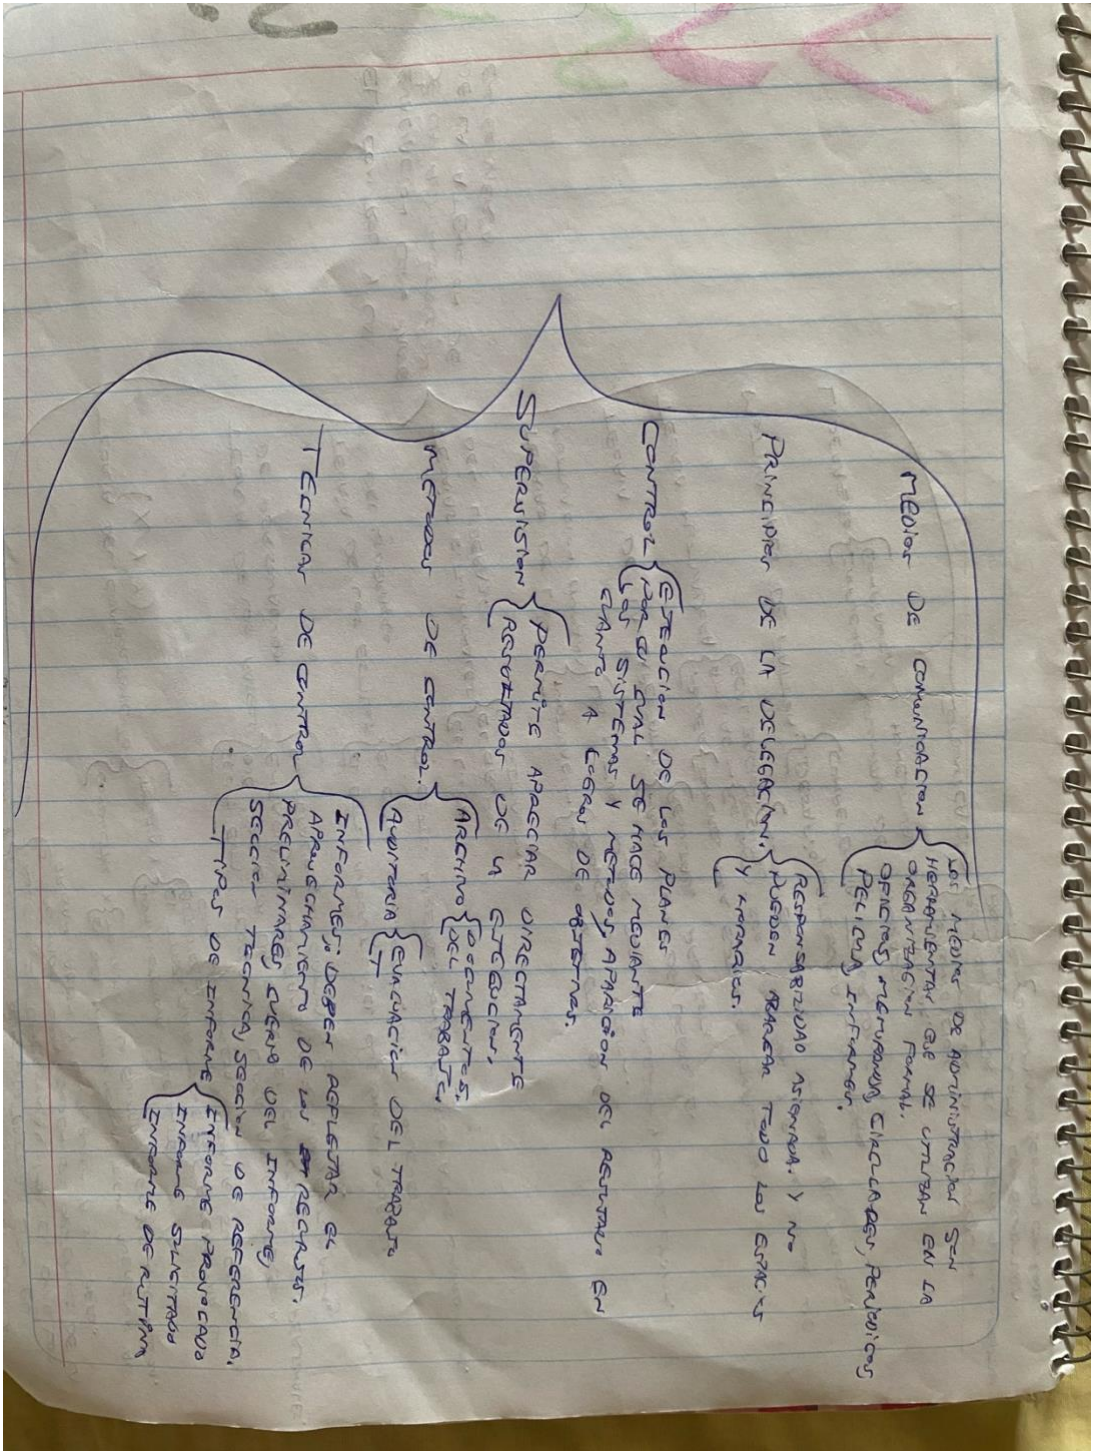 MEDIOS DE COMUNICACION
LOS MEDIOS DE ADMINISTRACION SON
HERRAMIENTAS QUE SE UTILIZAN EN LA
ORGANIZACIÓN FORMAL.
OFICIOS, MEMORANDOS, CIRCULARES, PERIODICOS
PELICULA, INFORMES.
PRINCIPIOS DE LA DELEGACION.
RESPONSABILIDAD ASIGNADA. Y NO
PUEDEN ABARCAR TODO LOS ESPACIOS
Y HORARIOS.
CONTROL
EJECUCION DE LOS PLANES
POR EL CUAL SE HACE MEDIANTE
LOS SISTEMAS Y METODOS, APARICIÓN DEL RESULTADO EN
CUANTO A LOGROS DE OBJETIVOS.
SUPERVISION
PERMITE APRECIAR DIRECTAMENTE
RESULTADOS DE LA EJECUCION.
METODOS DE CONTROL.
ARCHIVO
DOCUMENTOS.
DEL TRABAJO.
AUDITORIA
EVALUACIÓN DEL TRABAJO
TECNICAS DE CONTROL
INFORMES: DEBEN REFLEJTAR EL
APROVECHAMIENTO DE LOS RECURSOS.
PRELIMINARES, CUERPO DEL INFORME,
SECCION TECNICA, SECCION DE REFERENCIA.
TIPOS DE INFORME
INFORME PROVOCADO
INFORME SOLICITADO
INFORME DE RUTINA